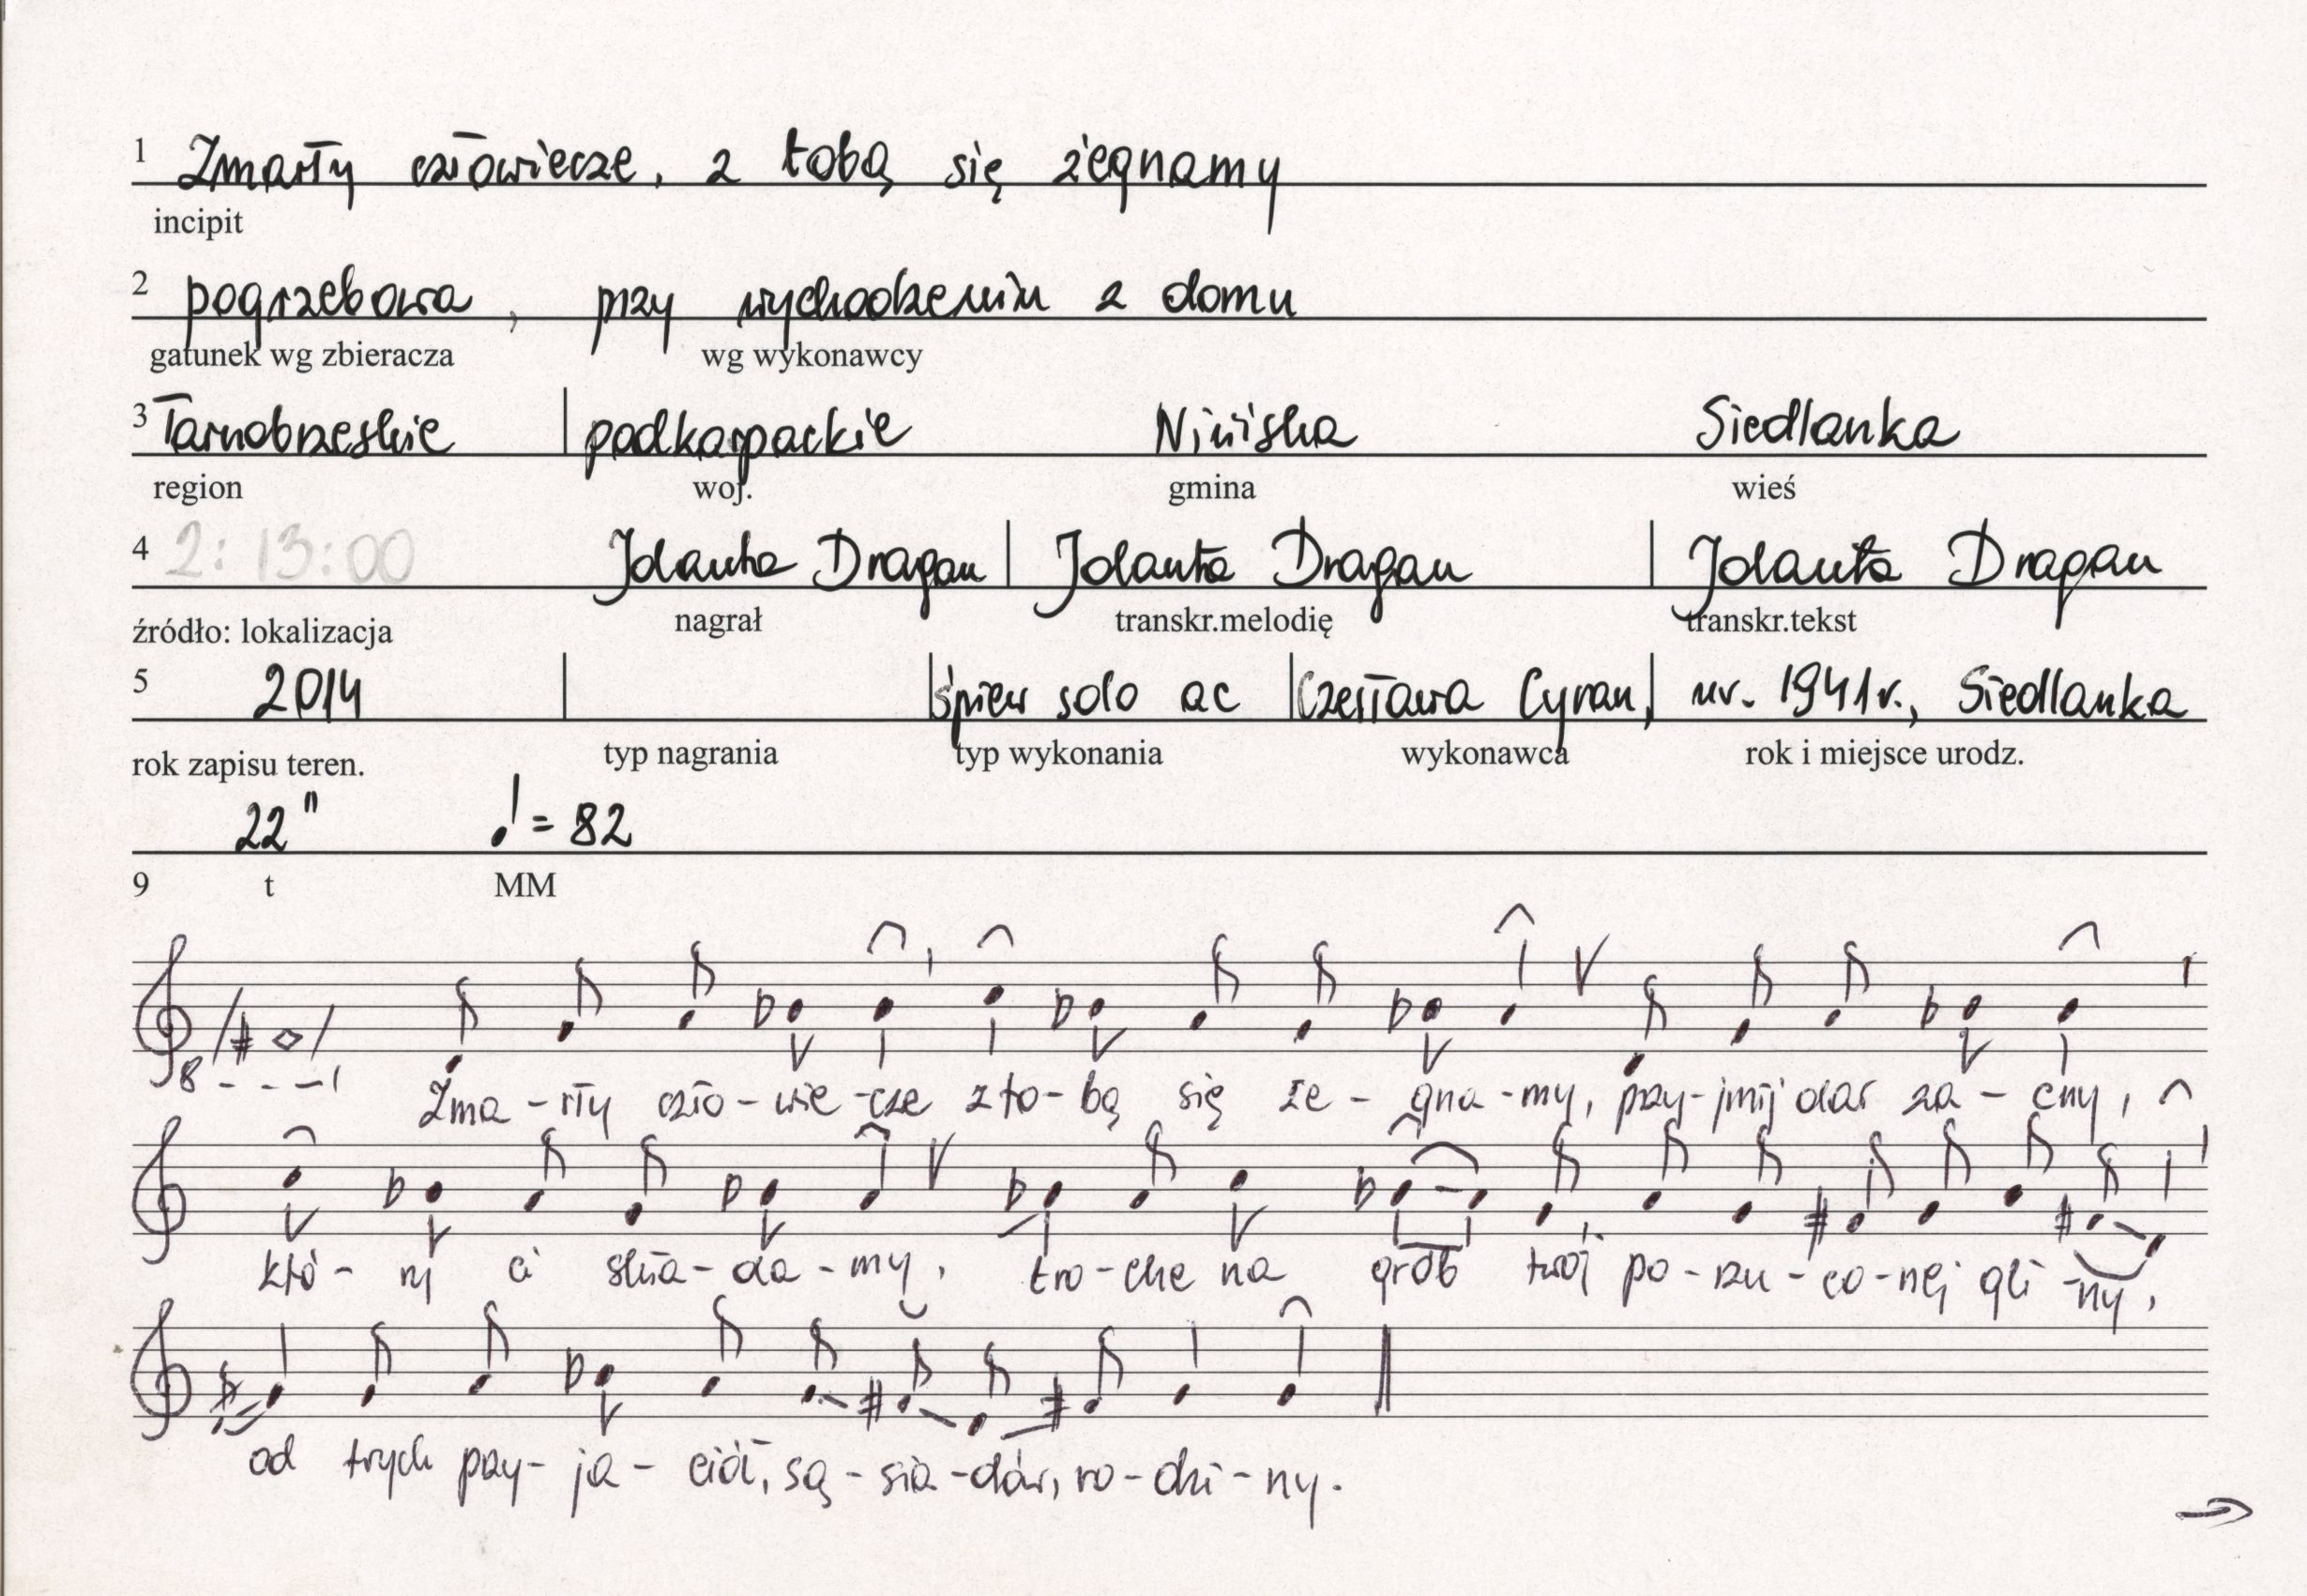 1 Zmarły człowiecze, z tobą się żegnamy
incipit
2 pogrzebowa, przy wychodzeniu z domu
gatunek wg zbieracza wg wykonawcy
3 Tarnobrzeskie podkarpackie Niwiska Siedlanka
region woj. gmina wieś
4 2:13:00 Jolanta Dragan Jolanta Dragan Jolanta Dragan
źródło: lokalizacja nagrał transkr.melodię transkr.tekst
5 2014 śpiew solo ac Czesława Cyran, ur. 1941r., Siedlanka
rok zapisu teren. typ nagrania typ wykonania wykonawca rok i miejsce urodz.
22" ♩ = 82
9 t MM
8
Zma-rły czło-wie-cze z to-bą się że-gna-my, przy-jmij dar za-cny,
któ-ry ci skła-da-my, tro-che na grób twój po-rzu-co-nej gli-ny,
od twych przy-ja-ciół, są-sia-dów, ro-dzi-ny.